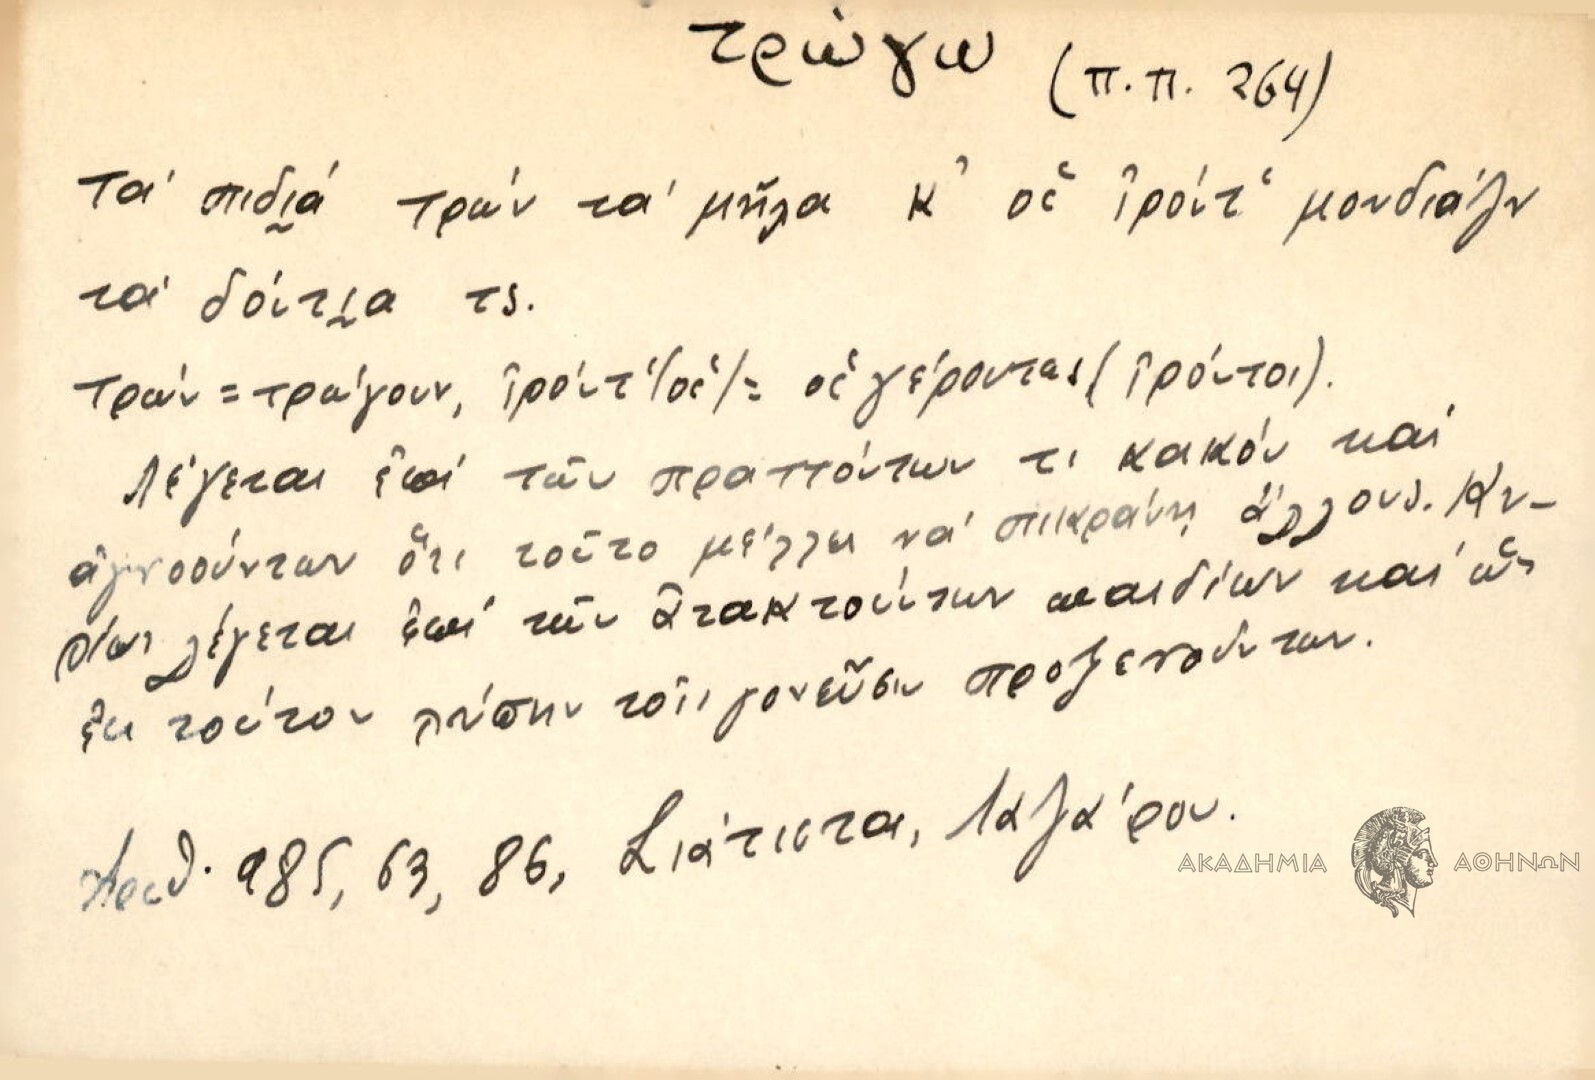 τρώγω (π.π. 264)
Τὰ πιδιά τρών τὰ μῆλα κ' οἱ γ̑ρόντ' μουδιάζν
τὰ δόντια τς.
Τρών = τρώγουν, γ̑ρόντ' /οἱ/ = οἱ γέροντες (γ̑ρόντοι).
Λέγεται ἐπί τῶν πραττόντων τι κακόν καί
ἀγνοούντων ὅτι τοῦτο μέλλει νά πικράνῃ ἄλλους. Κυ-
ρίως λέγεται ἐπί τῶν ἀτακτούντων παιδίων καί ὡς
ἐκ τούτου λύπην τοῖς γονεῦσιν προξενούντων.
Αριθ. 985, 63, 86, Σιάτιστα, Λαζάρου.
ΑΚΑΔΗΜΙΑ ΑΘΗΝΩΝ